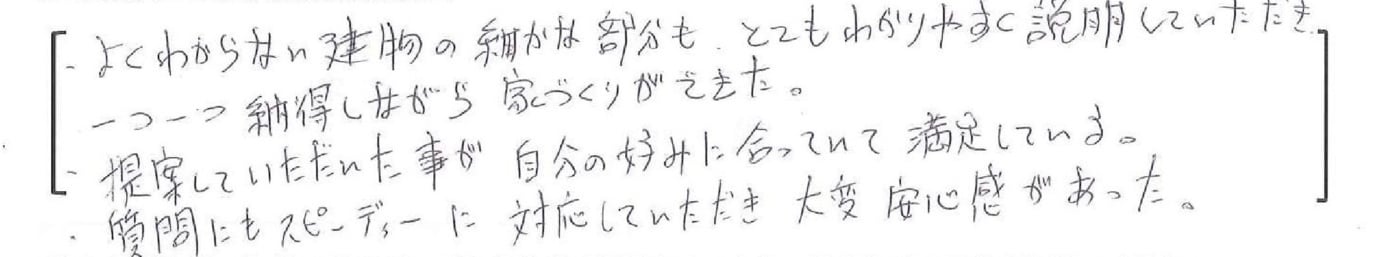 ・よくわからない建物の細かな部分も、とてもわかりやすく説明していただき、
一つ一つ納得しながら家づくりができた。
・提案していただいた事が自分の好みに合っていて満足している。
・質問にもスピーディーに対応していただき大変安心感があった。